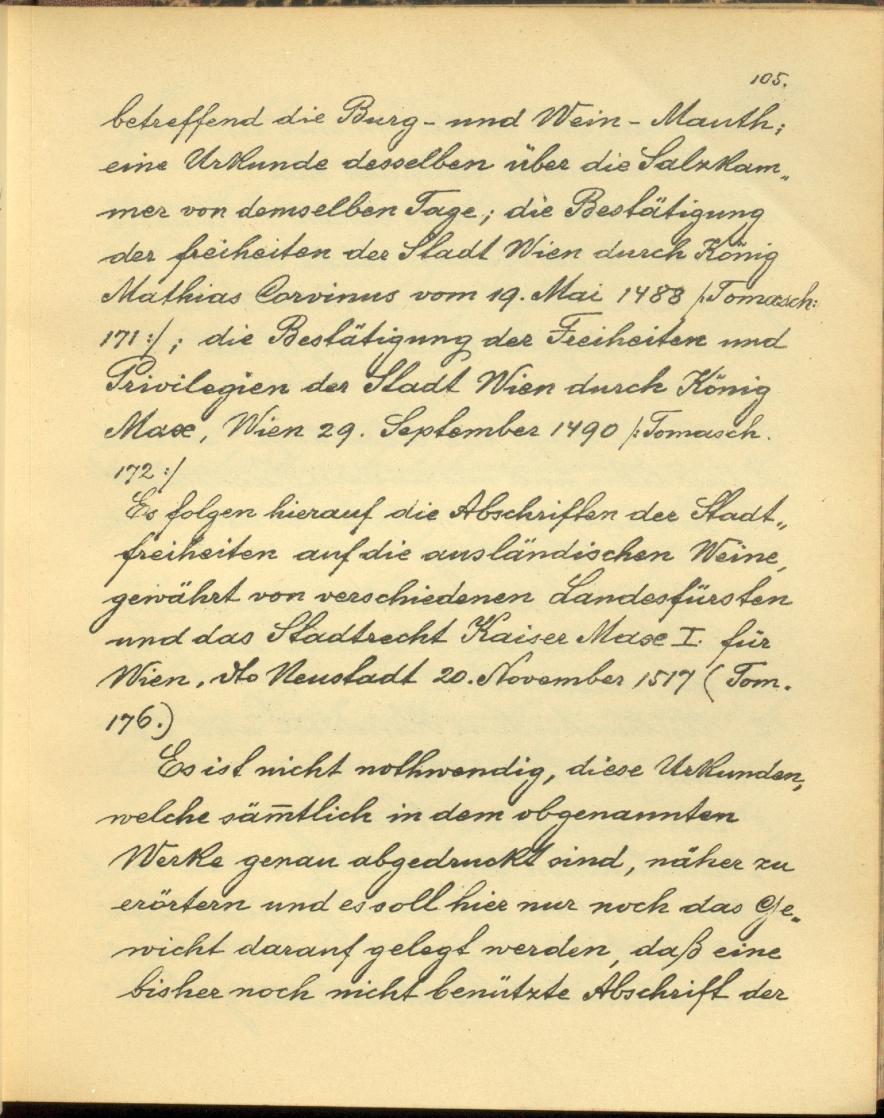 105.
betreffend die Burg- und Wein-Mauth;
eine Urkunde desselben über die Salzkam„
mer von demselben Tage; die Bestätigung
der freiheiten der Stadt Wien durch König
Mathias Corvinus vom 19. Mai 1488 /:Tomasch:
171:/; die Bestätigung der Freiheiten und
Privilegien der Stadt Wien durch König
Max, Wien 29. September 1490 /:Tomasch.
172:/
Es folgen hierauf die Abschriften der Stadt„
freiheiten auf die ausländischen Weine,
gewährt von verschiedenen Landesfürsten
und das Stadtrecht Kaiser Max I. für
Wien, dto Neustadt 20. November 1517 (Tom.
176.)
Es ist nicht nothwendig, diese Urkunden,
welche säm̄tlich in dem obgenannten
Werke genau abgedruckt sind, näher zu
erörtern und es soll hier nur noch das Ge„
wicht darauf gelegt werden, daß eine
bisher noch nicht benützte Abschrift der